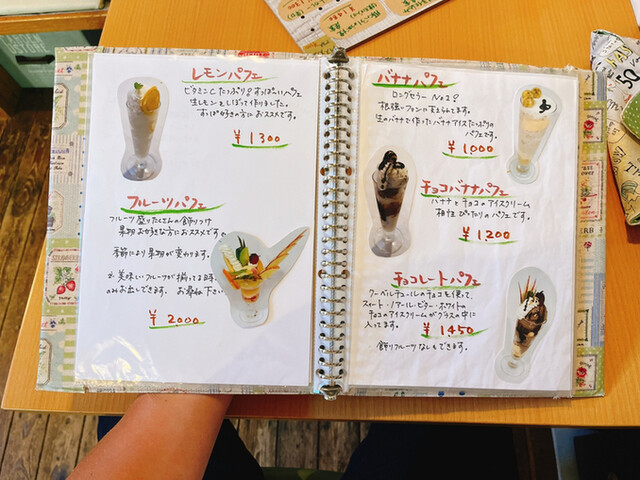 レモンパフェ
ビタミンCたっぷり!すっぱいパフェ
生レモンをしぼって作りました。
すっぱ好きの方におススメです。
¥1300
フルーツパフェ
フルーツ盛りだくさんの飾りつけ
果物お好きな方におススメです。
季節により果物が変わります。
美味しいフルーツが揃って
のみお出しできます。お尋ね下さい
¥2,000
バナナパフェ
ロングセラー No2!
根強いファンに支えられてます。
生のバナナで作ったバナナアイスたっぷりの
パフェです。
¥1,000
チョコバナナパフェ
バナナとチョコのアイスクリーム
相性ぴったりのパフェです。
¥1,200
チョコレートパフェ
クーベルチュールのチョコを使って、
スイート・ノアール・ビター・ホワイトの
チョコのアイスクリームがグラスの中に
入ってます。
¥1450
飾りフルーツなしもできます。